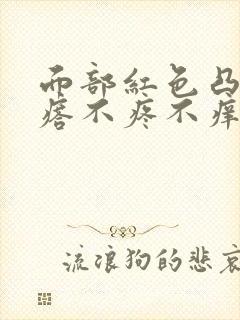 而部紅色凸
瘩不疼不痒
流浪狗的悲哀